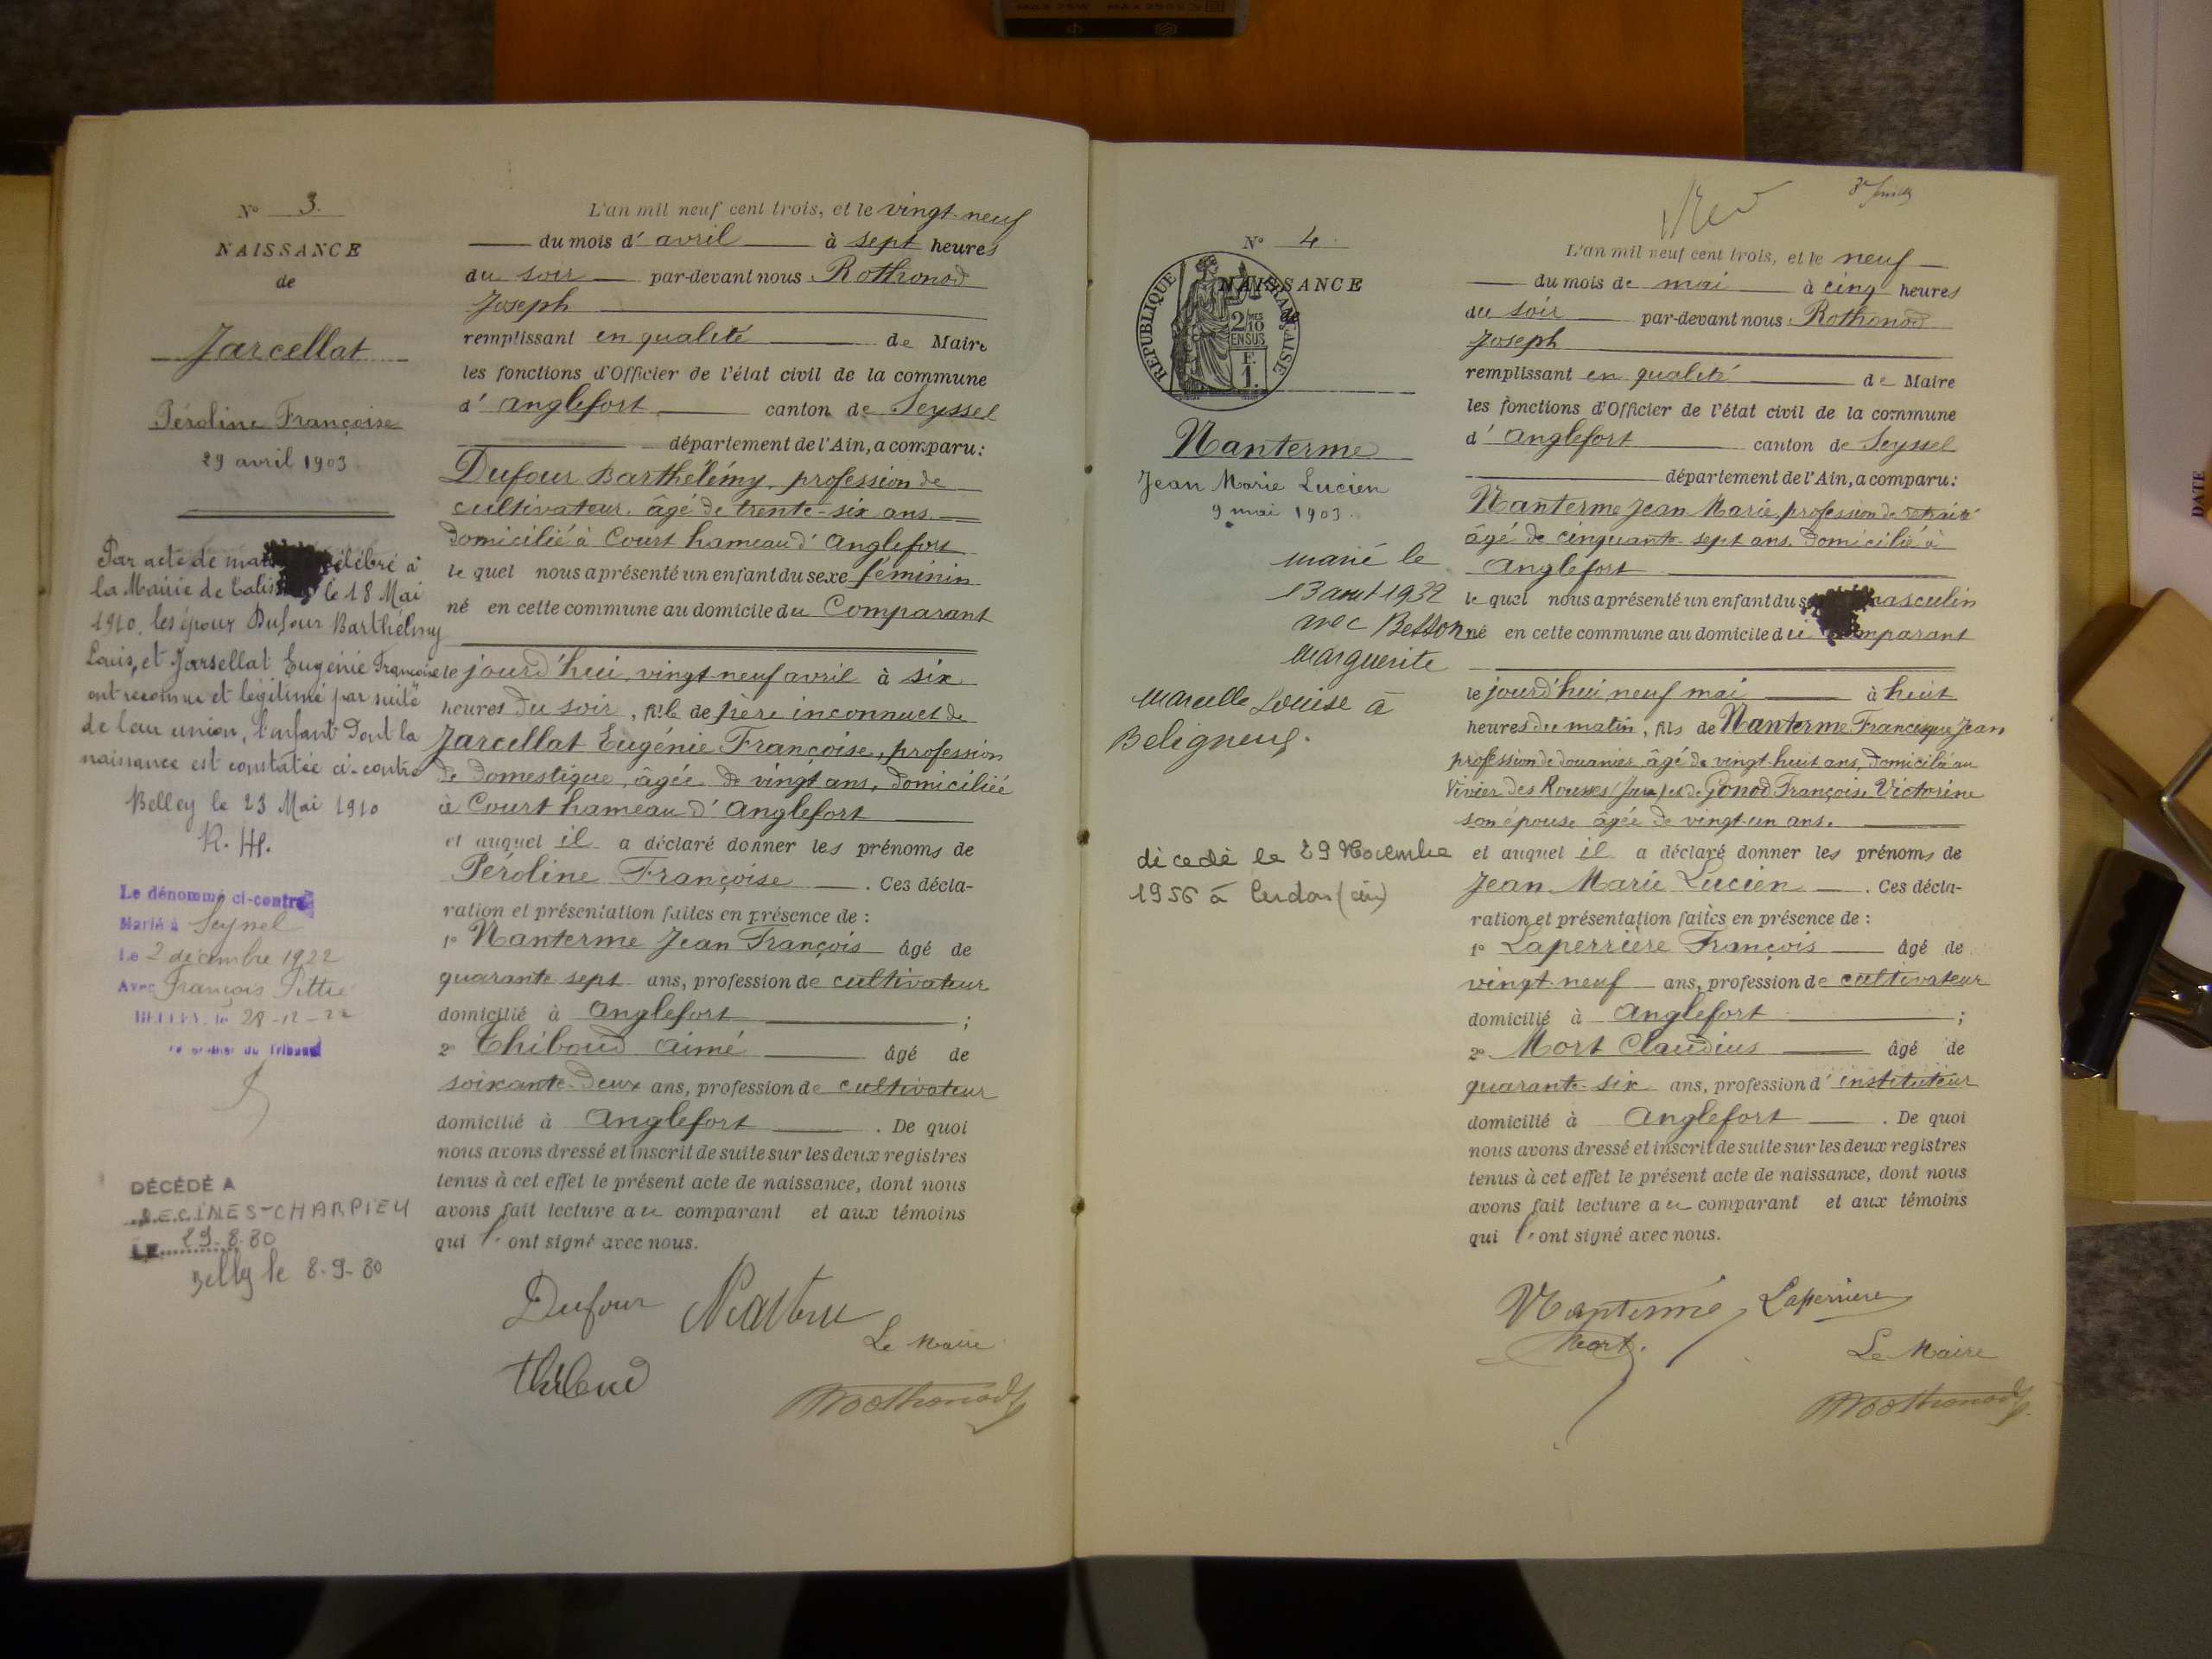 N° 3.
NAISSANCE
de
Jarcellat
Péroline Françoise
29 avril 1903
Par acte de célébré à
la Mairie de le 18 Mai
1910, les époux Dufour Barthélmy
Louis, et Jarsellat Eugénie Françoise
ont reconnu et légitimé par suite
de leur union, l'enfant dont la
naissance est constatée ci-contre
Belley le 23 Mai 1910
Le dénommé ci-contre
Marié à Seyssel
Le 2 décembre 1922
Avec François Pittié
BELLEY, le 28-12-22
Le greffier du Tribunal
DÉCÉDÉ A
DECINES-CHARPIEU
LE 29-8-80
Belley le 8-9-80
L'an mil neuf cent trois, et le vingt-neuf
du mois d' avril à sept heures
du soir par-devant nous Rothonod
Joseph
remplissant en qualité de Maire
les fonctions d'Officier de l'état civil de la commune
d' Anglefort canton de Seyssel
département de l'Ain, a comparu:
Dufour Barthélémy, profession de
cultivateur, âgé de trente-six ans
domicilié à Court hameau d'Anglefort
le quel nous a présenté un enfant du sexe féminin
né en cette commune au domicile du Comparant
le jourd'hui, vingt-neuf avril à six
heures du soir, fils de père inconnu et de
Jarcellat Eugénie Françoise, profession
de domestique, âgée de vingt ans, domiciliée
à Court hameau d'Anglefort
et auquel il a déclaré donner les prénoms de
Péroline Françoise . Ces décla-
ration et présentation faites en présence de :
1° Nanterme Jean François âgé de
quarante-sept ans, profession de cultivateur
domicilié à Anglefort ;
2° Thiboud Aimé âgé de
soixante-deux ans, profession de cultivateur
domicilié à Anglefort . De quoi
nous avons dressé et inscrit de suite sur les deux registres
tenus à cet effet le présent acte de naissance, dont nous
avons fait lecture au comparant et aux témoins
qui l'ont signé avec nous.
Dufour
Le Maire
Thiboud
Rothonod
N° 4
NAISSANCE
de
REPUBLIQUE FRANÇAISE
2/10 MES EN SUS
1 F.
Nanterme
Jean Marie Lucien
9 mai 1903.
marié le
13 aout 1932
avec Betton
Marguerite
Marcelle Louise à
Beligneux.
décédé le 29 Novembre
1956 à
L'an mil neuf cent trois, et le neuf
du mois de mai à cinq heures
du soir par-devant nous Rothonod
Joseph
remplissant en qualité de Maire
les fonctions d'Officier de l'état civil de la commune
d' Anglefort canton de Seyssel
département de l'Ain, a comparu:
Nanterme Jean Marie, profession de retraité
âgé de cinquante-sept ans, domicilié à
Anglefort
le quel nous a présenté un enfant du masculin
né en cette commune au domicile du comparant
le jourd'hui, neuf mai à huit
heures du matin, fils de Nanterme Francisque Jean
profession de douanier âgé de vingt-huit ans, domicilié au
Vivier des Rousses (Jura) et de Gonod Françoise Victorine
son épouse âgée de vingt-un ans.
et auquel il a déclaré donner les prénoms de
Jean Marie Lucien . Ces décla-
ration et présentation faites en présence de :
1° Laperrière François âgé de
vingt-neuf ans, profession de cultivateur
domicilié à Anglefort ;
2° Mort Claudius âgé de
quarante-six ans, profession d' instituteur
domicilié à Anglefort . De quoi
nous avons dressé et inscrit de suite sur les deux registres
tenus à cet effet le présent acte de naissance, dont nous
avons fait lecture au comparant et aux témoins
qui l'ont signé avec nous.
Nanterme Laperrière
Mort.
Le Maire
Rothonod
DATE